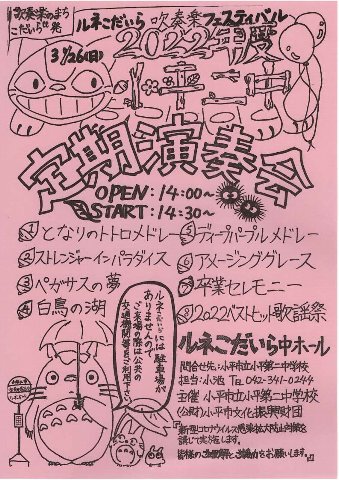 吹奏楽のまち
こだいら発
ルネこだいら 吹奏楽フェスティバル
3/26(日)
2022年度
小平二中
定期演奏会
OPEN:14:00〜
START:14:30〜
1 となりのトトロメドレー
2 ストレンジャーインパラダイス
3 ペガサスの夢
4 白鳥の湖
5 ディープパープルメドレー
6 アメージンググレース
7 卒業セレモニー
8 2022ベストヒット歌謡祭
ルネこだいらには駐車場が
ありませんので
ご来場の際は公共の
交通機関等をご利用下さい
ルネこだいら中ホール
問合せ先:小平市立小平第二中学校
担当:小池 Tel 042-341-0244
主催 小平市立小平第二中学校
(公財)小平市文化振興財団
『新型コロナウイルス感染拡大防止対策を
講じて実施します。
皆様のご理解とご協力をお願いします。』